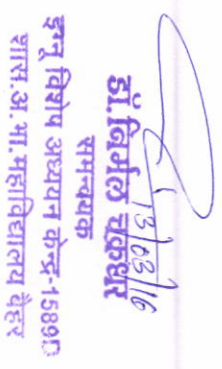 13/03/16
डॉ.निर्मल चक्रधर
समन्वयक
इग्नू विशेष अध्ययन केन्द्र-1589D
शास.अ.भा.महाविद्यालय पेंड्रा